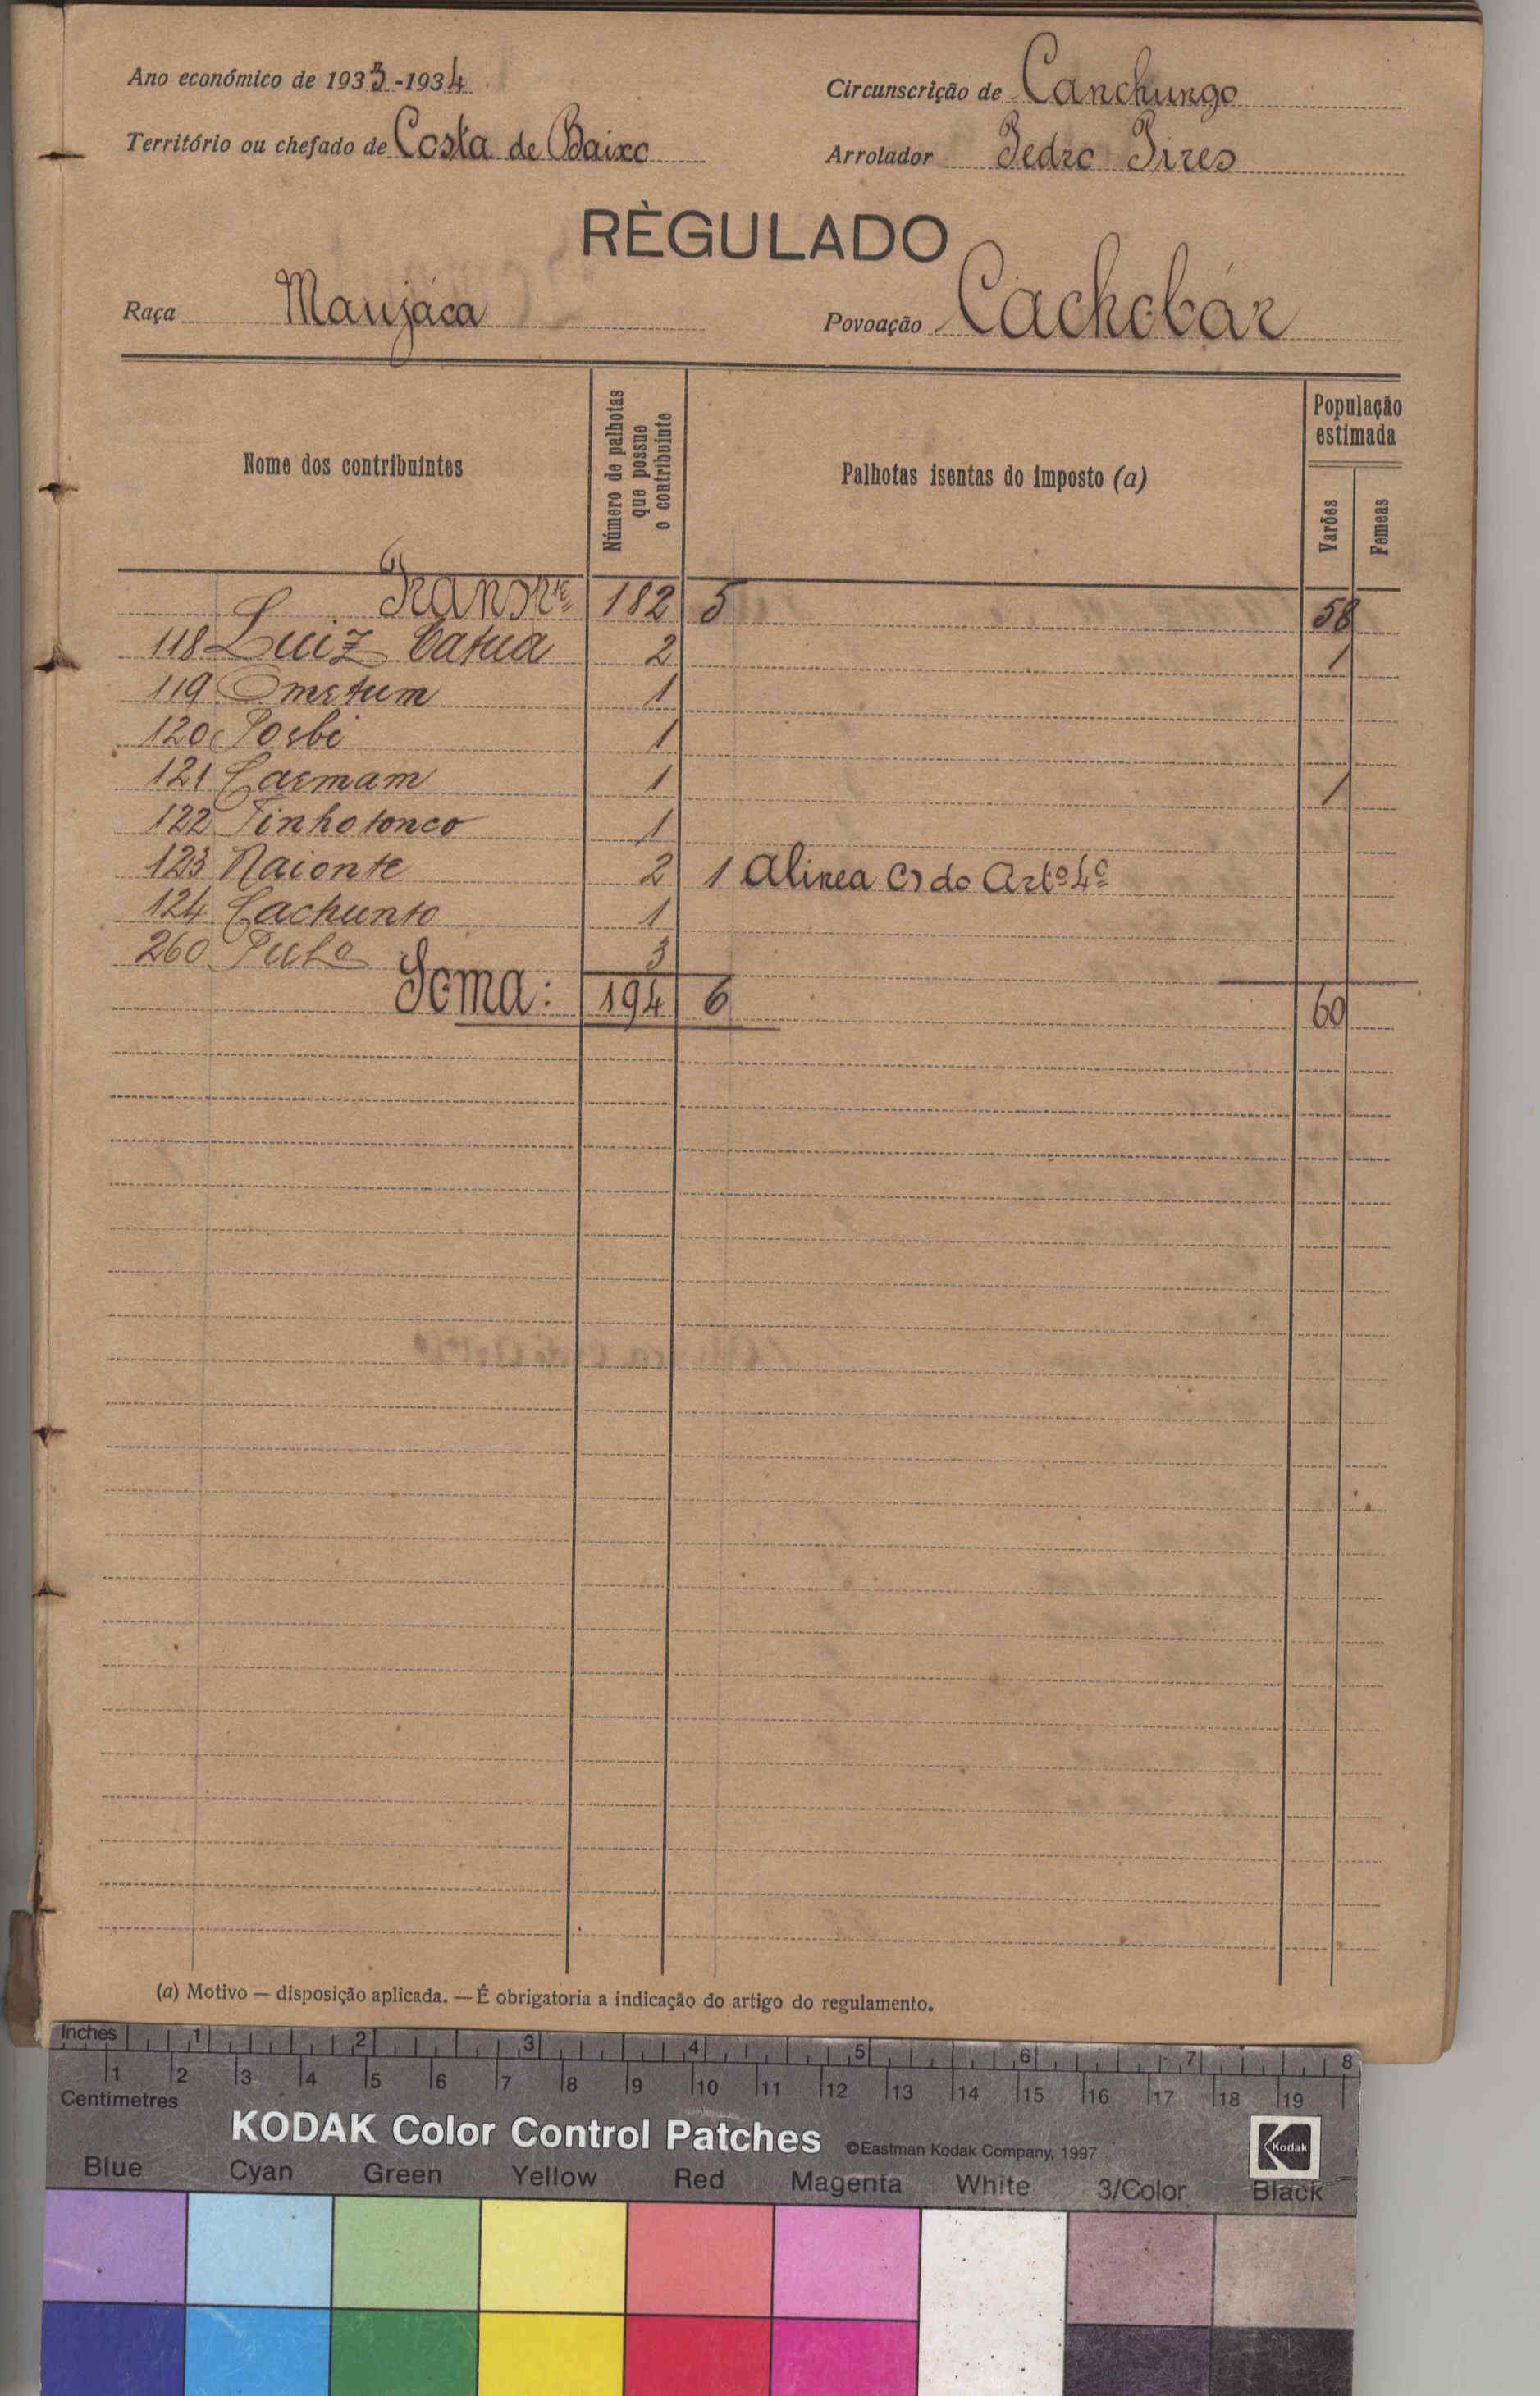 Ano económico de 1933-1934
Circunscrição de Canchungo
Território ou chefado de Costa de Baixo
Arrolador Pedro Pires
RÈGULADO
Raça Manjáca
Povoação Cachobár
Nome dos contribuintes
Número de palhotas que possue o contribuinte
Palhotas isentas do imposto (a)
População estimada
Varões
Femeas
Transpte 182 5 58
118 Luiz Catua 2 1
119 Ometum 1
120 Posbi 1
121 Caemam 1 1
122 Tinhotonco 1
123 Naionte 2 1 Alinea C) do Artº 4º
124 Cachunto 1
260 3
Soma: 194 6 60
(a) Motivo — disposição aplicada. — É obrigatoria a indicação do artigo do regulamento.
Inches 1 2 3 4 5 6 7 8
1 2 3 4 5 6 7 8 9 10 11 12 13 14 15 16 17 18 19
Centimetres
KODAK Color Control Patches ©Eastman Kodak Company, 1997 Kodak
Blue Cyan Green Yellow Red Magenta White 3/Color Black